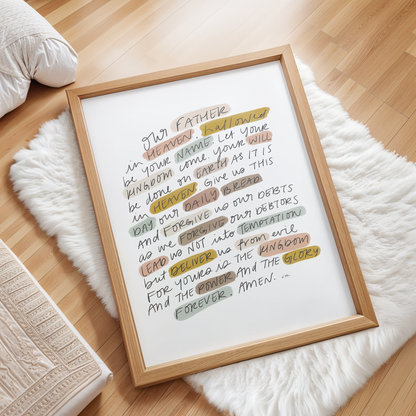 our FATHER
in HEAVEN, hallowed
be your NAME. Let your
KINGDOM come. your WILL
be done on EARTH AS IT IS
in HEAVEN Give us THIS
DAY our DAILY BREAD
And FORGIVE us our DEBTS
as we FORGIVE our DEBTORS
LEAD us NOT into TEMPTATION
but DELIVER us from evil
For yours is THE KINGDOM
And THE POWER And THE GLORY
FOREVER. AMEN.